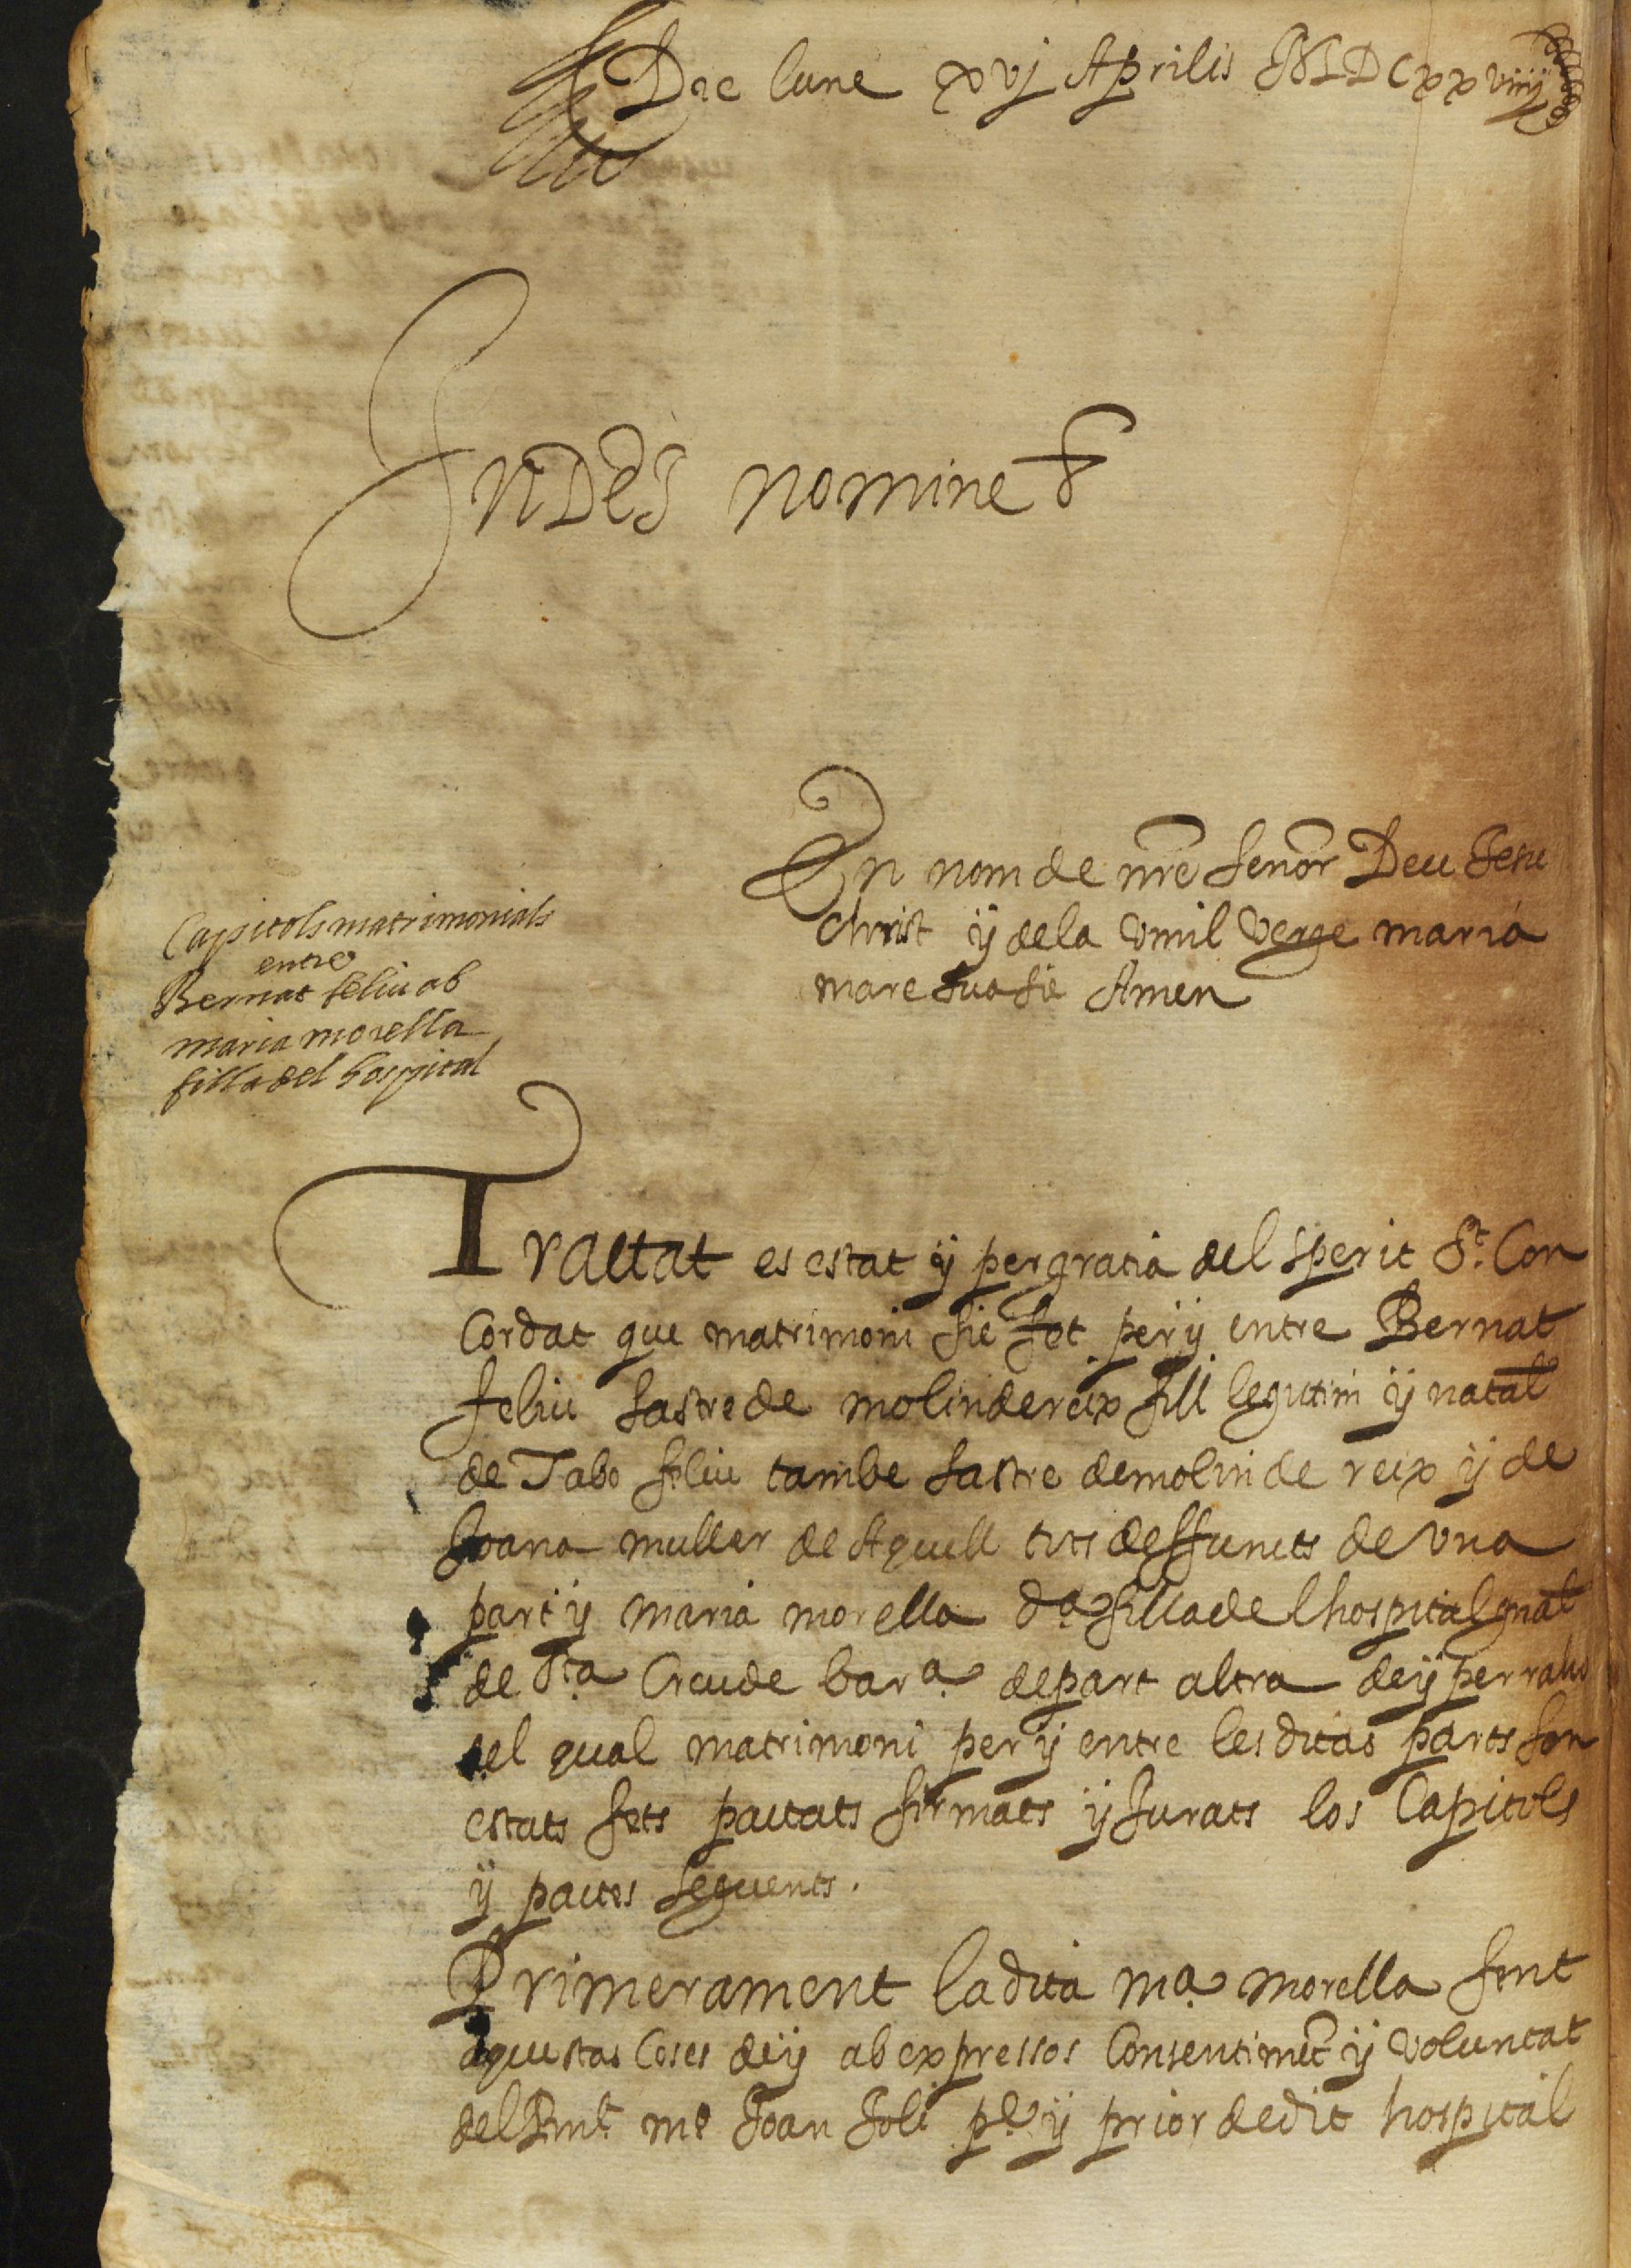 Die lune xvj Aprilis MDCxxviiij
In Dei nomine &
En nom de nre senor Deu Jesu
Christ ÿ de la Vmil Verge maria
mare sua sie Amen
Capitols matrimonials
entre
Bernat feliu ab
maria morella
filla del hospital
Tractat es estat ÿ per gratia del sperit St. Con
Cordat que matrimoni sie fet per ÿ entre Bernat
feliu sastre de molindereix fill legitim ÿ natal
de Tabo feliu tambe sastre de molin de reix ÿ de
Joana muller de Aquell tots deffuncts de vna
part ÿ maria morella da. filla de l hospital gnal
de Sta Creu de bara. de part altra de ÿ per raho
del qual matrimoni per ÿ entre les ditas parts son
estats fets pactats firmats ÿ Jurats los Capitols
ÿ pactes seguents.
Primerament la dita ma. morella fent
aquestas Coses de ÿ ab expressos Consentimet ÿ voluntat
del Rnt. me Joan Soli pe. ÿ prior de dit hospital